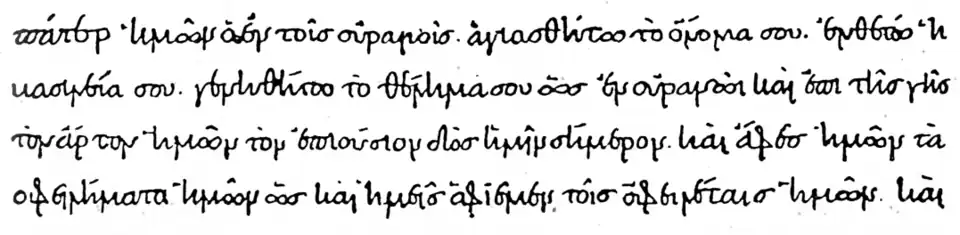 πάτερ ἡμῶν ὁ ἐν τοῖς οὐρανοῖς. ἁγιασθήτω τὸ ὄνομα σου. ἐλθέτω ἡ
βασιλεία σου. γενηθήτω τὸ θέλημα σου ὡς ἐν οὐρανῶι καὶ ἐπὶ τῆς γῆς
τὸν ἄρτον ἡμῶν τὸν ἐπιούσιον δὸς ἡμῖν σήμερον. καὶ ἄφες ἡμῶν τὰ
ὀφειλήματα ἡμῶν ὡς καὶ ἡμεῖς ἀφίεμεν τοῖς ὀφειλέταις ἡμῶν. καὶ